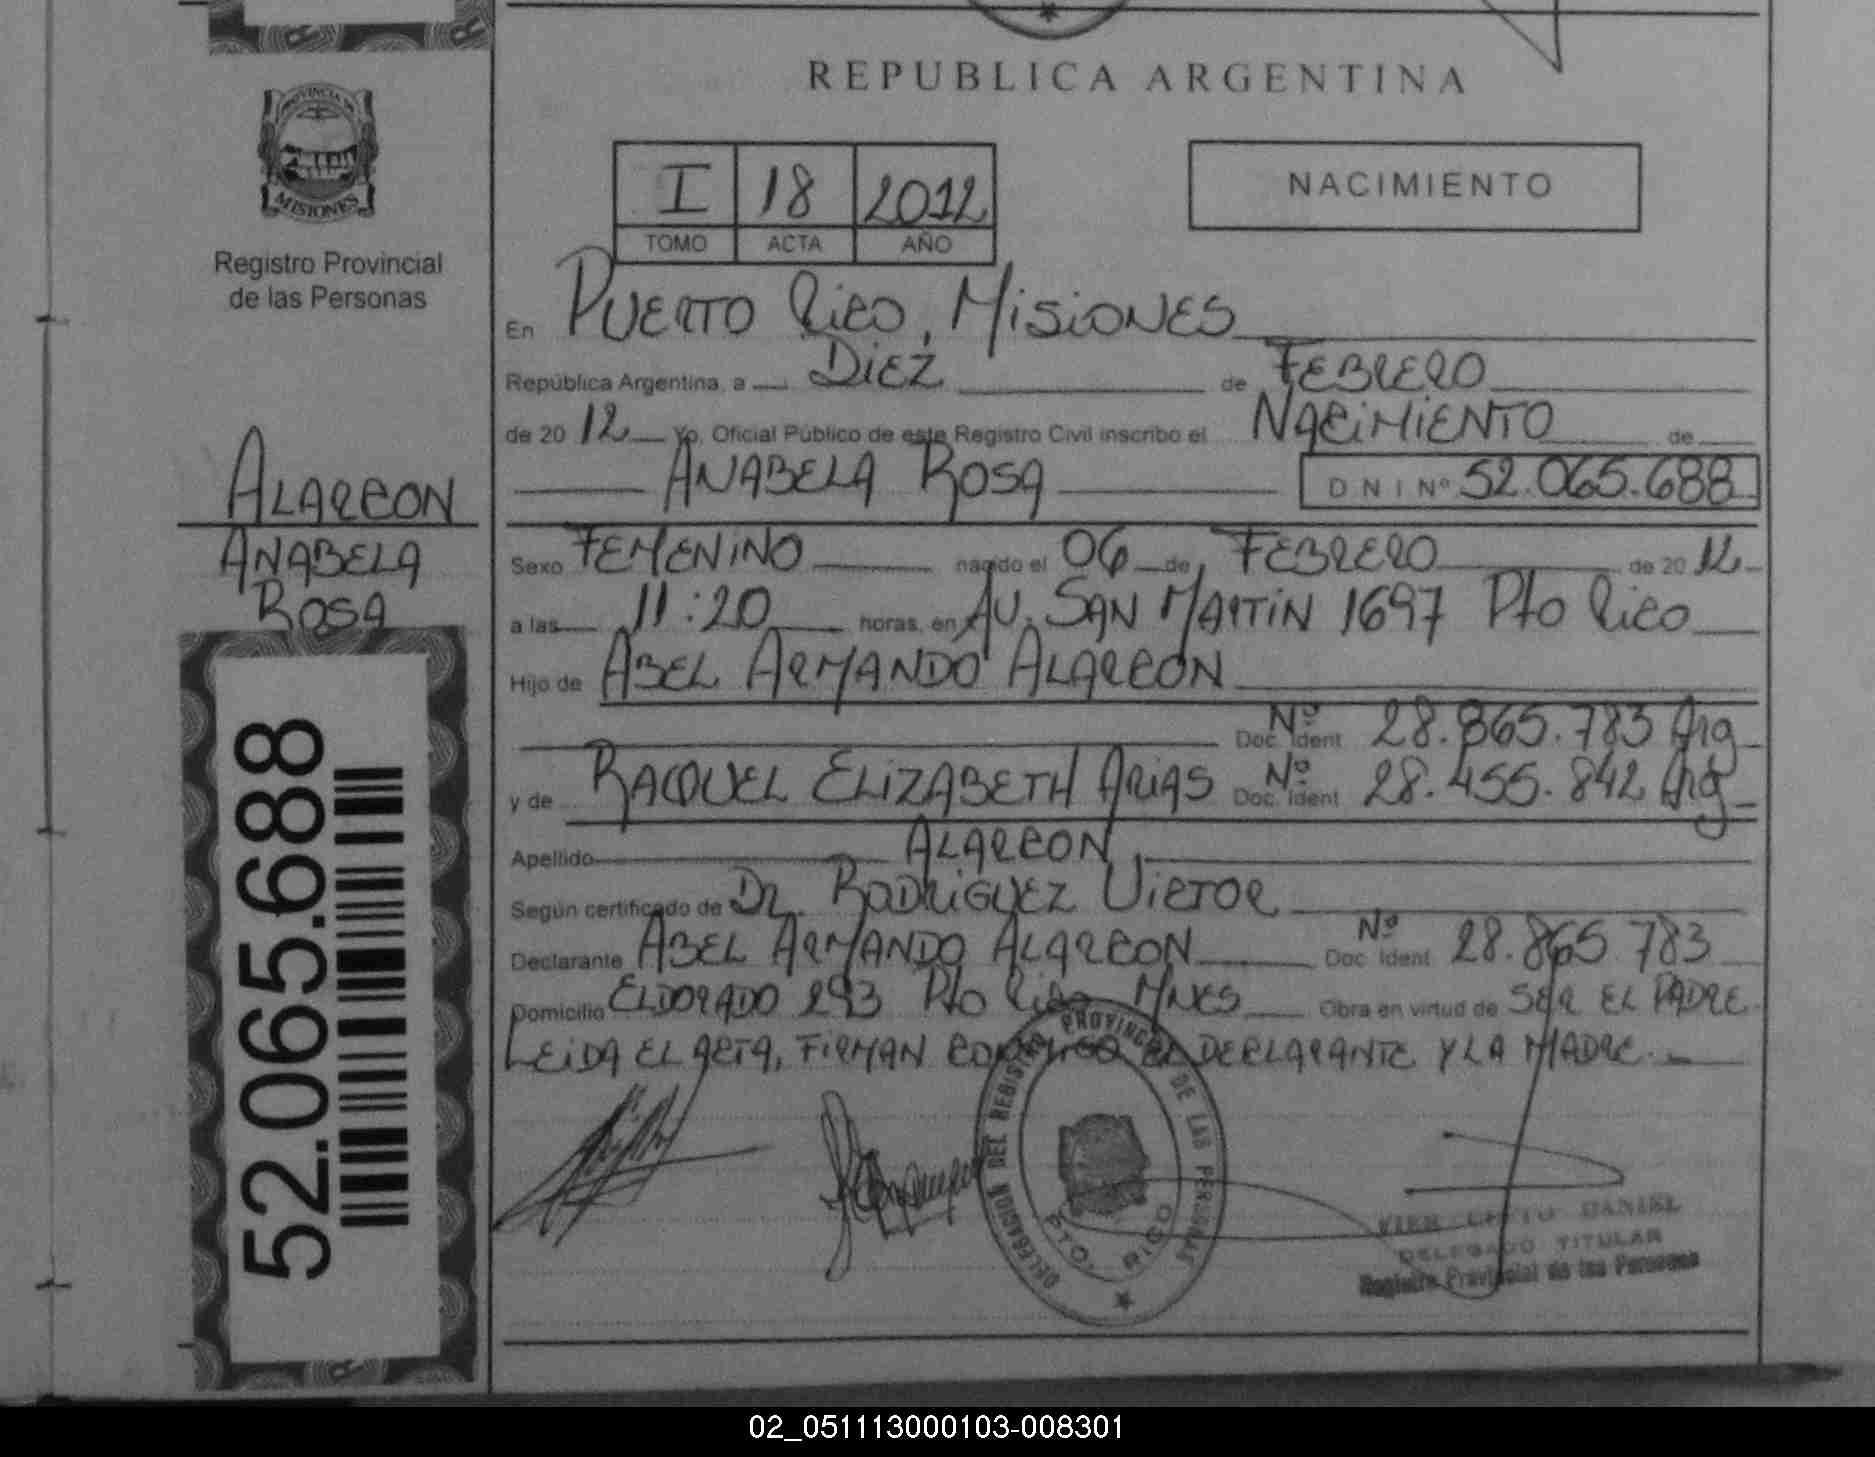 REPUBLICA ARGENTINA
PROVINCIA DE
MISIONES
Registro Provincial
de las Personas
I 18 2012
TOMO ACTA AÑO
NACIMIENTO
En PUERTO RICO, MISIONES
República Argentina, a DIEZ de FEBRERO
de 20 12 Yo, Oficial Público de este Registro Civil inscribo el NACIMIENTO de
ANABELA ROSA D N I Nº 52.065.688
ALARCON
ANABELA
ROSA
52.065.688
Sexo FEMENINO nacido el 06 de FEBRERO de 20 12
a las 11:20 horas, en AV. SAN MARTIN 1697 Pto Rico
Hijo de ABEL ARMANDO ALARCON
Nº Doc. Ident 28.865.783 Arg
y de RAQUEL ELIZABETH ARIAS Nº Doc. Ident 28.455.842 Arg
Apellido ALARCON
Según certificado de Dr. RODRIGUEZ VICTOR
Declarante ABEL ARMANDO ALARCON Nº Doc. Ident 28.865.783
Domicilio ELDORADO 293 Pto Rico MNES Obra en virtud de SER EL PADRE
LEIDA EL ACTA, FIRMAN CONMIGO EL DECLARANTE Y LA MADRE.
DELEGACION DEL REGISTRO PROVINCIAL DE LAS PERSONAS
PTO. RICO
DANIEL
DELEGADO TITULAR
Registro Provincial de las Personas
02_051113000103-008301